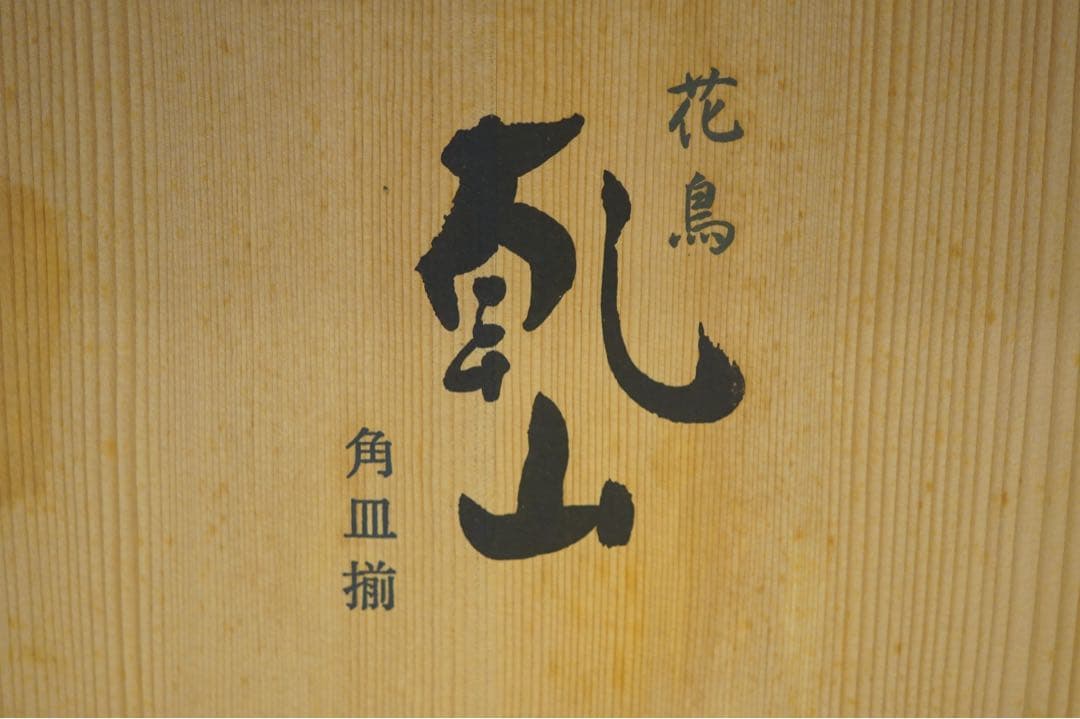 花鳥
乾山
角皿揃